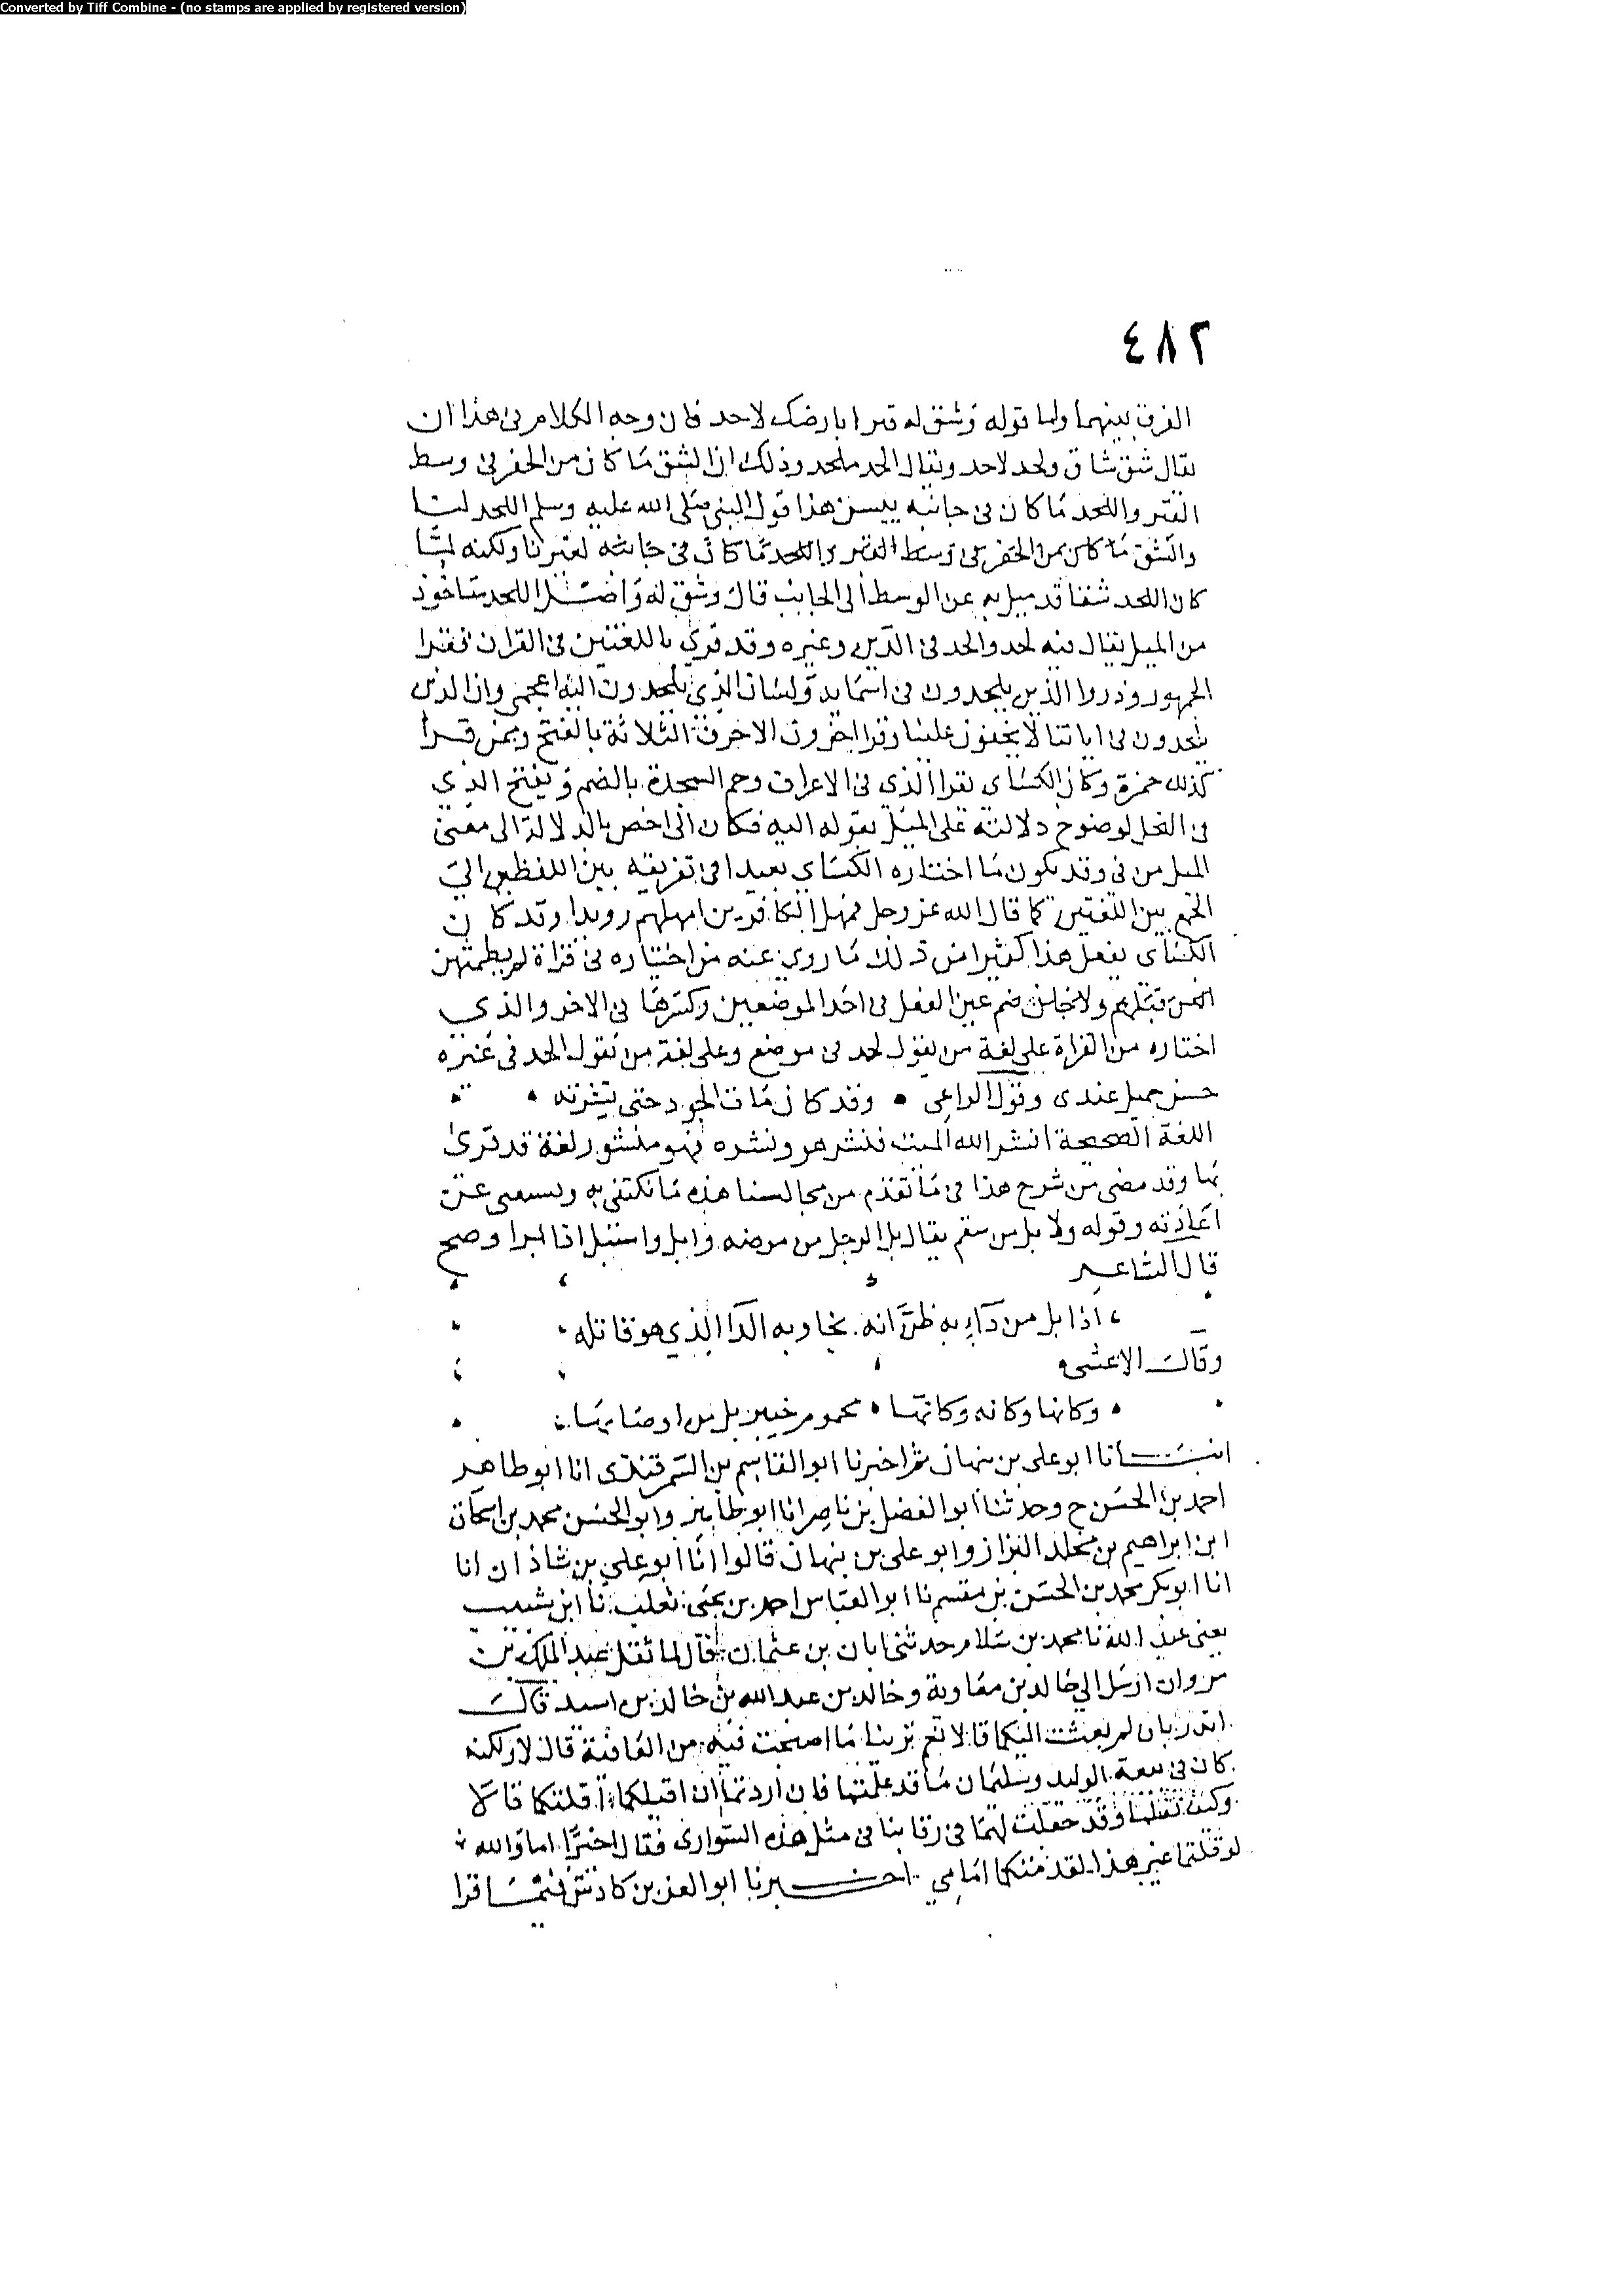 Converted by Tiff Combine - (no stamps are applied by registered version)
٤٨٢
الفرق بينهما واما قوله وشق له قبرا بارضك لاحد فان وجه الكلام في هذا ان
يقال شق شاق ولحد لاحد ويقال الحد ملحد وذلك ان الشق ما كان من الحفر في وسط
القبر واللحد ما كان في جانبه يبين هذا قول النبي صلى الله عليه وسلم اللحد لنا
والشق ما كان من الحفر في وسط القبر واللحد ما كان في جانبه لغيرنا ولكنه لما
كان اللحد شقا قد ميل به عن الوسط الى الجانب قال وشق له واصل اللحد ماخوذ
من الميل يقال فيه لحد والحد في الدين وغيره وقد قرئ باللغتين في القران فقرا
الجمهور وذروا الذين يلحدون في اسمايه ولسان الذي يلحدون اليه اعجمي وان الذين
يلحدون في اياتنا لا يخفون علينا وقرا اخرون الاحرف الثلاثة بالفتح وممن قرا
كذلك حمزة وكان الكساي يقرا الذي في الاعراف وحم السجدة بالضم ويفتح الذي
في النحل لوضوح دلالته على الميل بقوله اليه فكان الى اخص بالدلالة الى معنى
الميل من في وقد يكون ما اختاره الكساي بعيدا في تفريقه بين اللفظين الى
الجمع بين اللغتين كما قال الله عز وجل فمهل الكافرين امهلهم رويدا وقد كان
الكساي يفعل هذا كثيرا من ذلك ما روي عنه من اختياره في قراة لم يطمثهن
انس قبلهم ولا جان ضم عين الفعل في احد الموضعين وكسرها في الاخر والذي
اختاره من القراة على لغة من يقول لحد في موضع وعلى لغة من يقول الحد في غيره
حسن جميل عندي وقول الراعي • وقد كان مات الجود حتى نشرته •
اللغة الصحيحة انشر الله الميت فنشر هو ونشره فهو منشور لغة قد قرئ
بها وقد مضى من شرح هذا في ما تقدم من مجالسنا هذه ما نكتفي به ويستغنى عن
اعادته وقوله ولا بل من سقم يقال بل الرجل من مرضه وابل واستبل اذا برا وصح
قال الشاعر
اذا بل من داء به ظن انه. نجا وبه الدا الذي هو قاتله
وقال الاعشى
• وكانها وكانه وكانما • محموم خيبر بل من اوصابها
انبانا ابو علي بن نبهان ثم اخبرنا ابو القاسم بن السمرقندي انا ابو طاهر
احمد بن الحسن ح وحدثنا ابو الفضل بن ناصر انا ابو طاهر وابو الحسن محمد بن اسحاق
ابن ابراهيم بن مخلد البزاز وابو علي بن نبهان قالوا انا ابو علي بن شاذان انا
انا ابو بكر محمد بن الحسن بن مقسم نا ابو العباس احمد بن يحيى ثعلب نا ابن شبيب
يعني عبد الله نا محمد بن سلام حدثني ابان بن عثمان قال لما ثقل عبد الملك بن
مروان ارسل الى خالد بن معاوية وخالد بن عبد الله بن خالد بن اسيد قال
اتدريان لم بعثت اليكما قالا نعم ترينا ما اصبحت فيه من العافية قال لا ولكنه
كان في بيعة الوليد وسليمان ما قد علمتما فان اردتما ان اقيلكما اقلتكما قالا
وكيف تقيلنا وقد جعلت لهما في رقابنا في مثل هذه السواري فقال اخترا اما والله
لو قلتما غير هذا لقدمتكما امامي اخبرنا ابو العز بن كادش فيما قرا